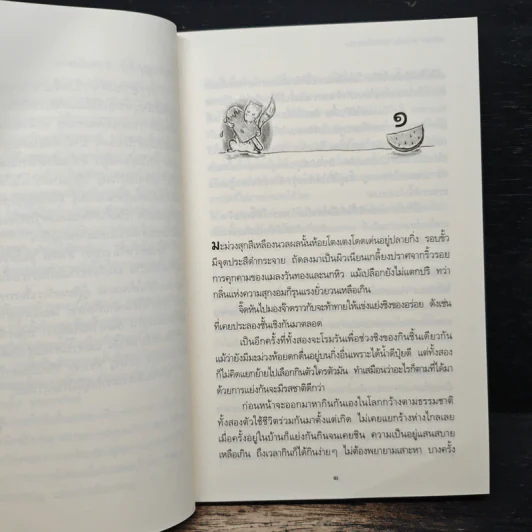 ๑
มะม่วงสุกสีเหลืองนวลผลนั้นห้อยโตงเตงโดดเด่นอยู่ปลายกิ่ง รอบขั้ว
มีจุดประสีดำกระจาย ถัดลงมาเป็นผิวเนียนเกลี้ยงปราศจากริ้วรอย
การคุกคามของแมลงวันทองและนกหิว แม้เปลือกยังไม่แตกปริ ทว่า
กลิ่นแห่งความสุกงอมก็รุนแรงยั่วยวนเหลือเกิน
จี๊ดหันไปมองจ๊าดราวกับจะท้าทายให้แข่งแย่งชิงของอร่อย ดังเช่น
ที่เคยประลองชั้นเชิงกันมาตลอด
เป็นอีกครั้งที่ทั้งสองจะโรมรันเพื่อช่วงชิงของกินชิ้นเดียวกัน
แม้ว่ายังมีมะม่วงห้อยดกดื่นอยู่บนกิ่งอื่นเพราะได้น้ำดีปุ๋ยดี แต่ทั้งสอง
ก็ไม่คิดแยกย้ายไปเลือกกินตัวใครตัวมัน ทำเสมือนว่าอะไรก็ตามที่ได้มา
ด้วยการแย่งกันจะมีรสชาติดีกว่า
ก่อนหน้าจะออกมาหากินกันเองในโลกกว้างตามธรรมชาติ
ทั้งสองตัวใช้ชีวิตร่วมกันมาตั้งแต่เกิด ไม่เคยแยกร้างห่างไกลเลย
เมื่อครั้งอยู่ในบ้านก็แย่งกันกินจนเคยชิน ความเป็นอยู่แสนสบาย
เหลือเกิน ถึงเวลากินก็ได้กินง่ายๆ ไม่ต้องพยายามเสาะหา บางครั้ง